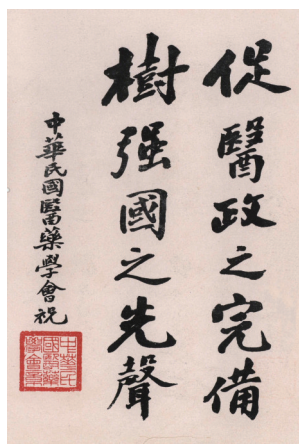 促醫政之完備
樹强國之先聲
中華民國醫藥學會祝
中華民國醫藥學會章